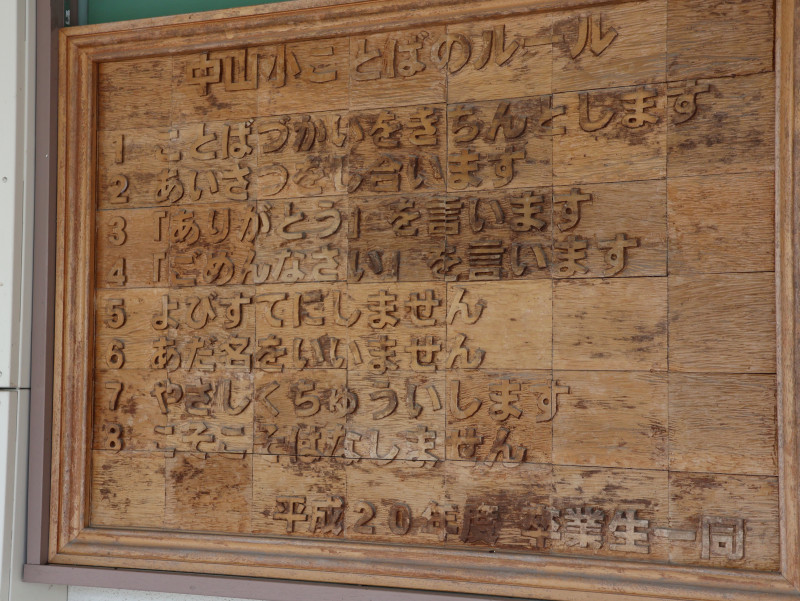 中山小ことばのルール
1 ことばづかいをきちんとします
2 あいさつをし合います
3 「ありがとう」を言います
4 「ごめんなさい」を言います
5 よびすてにしません
6 あだ名をいいません
7 やさしくちゅういします
8 こそこそばなしません
平成20年度 卒業生一同